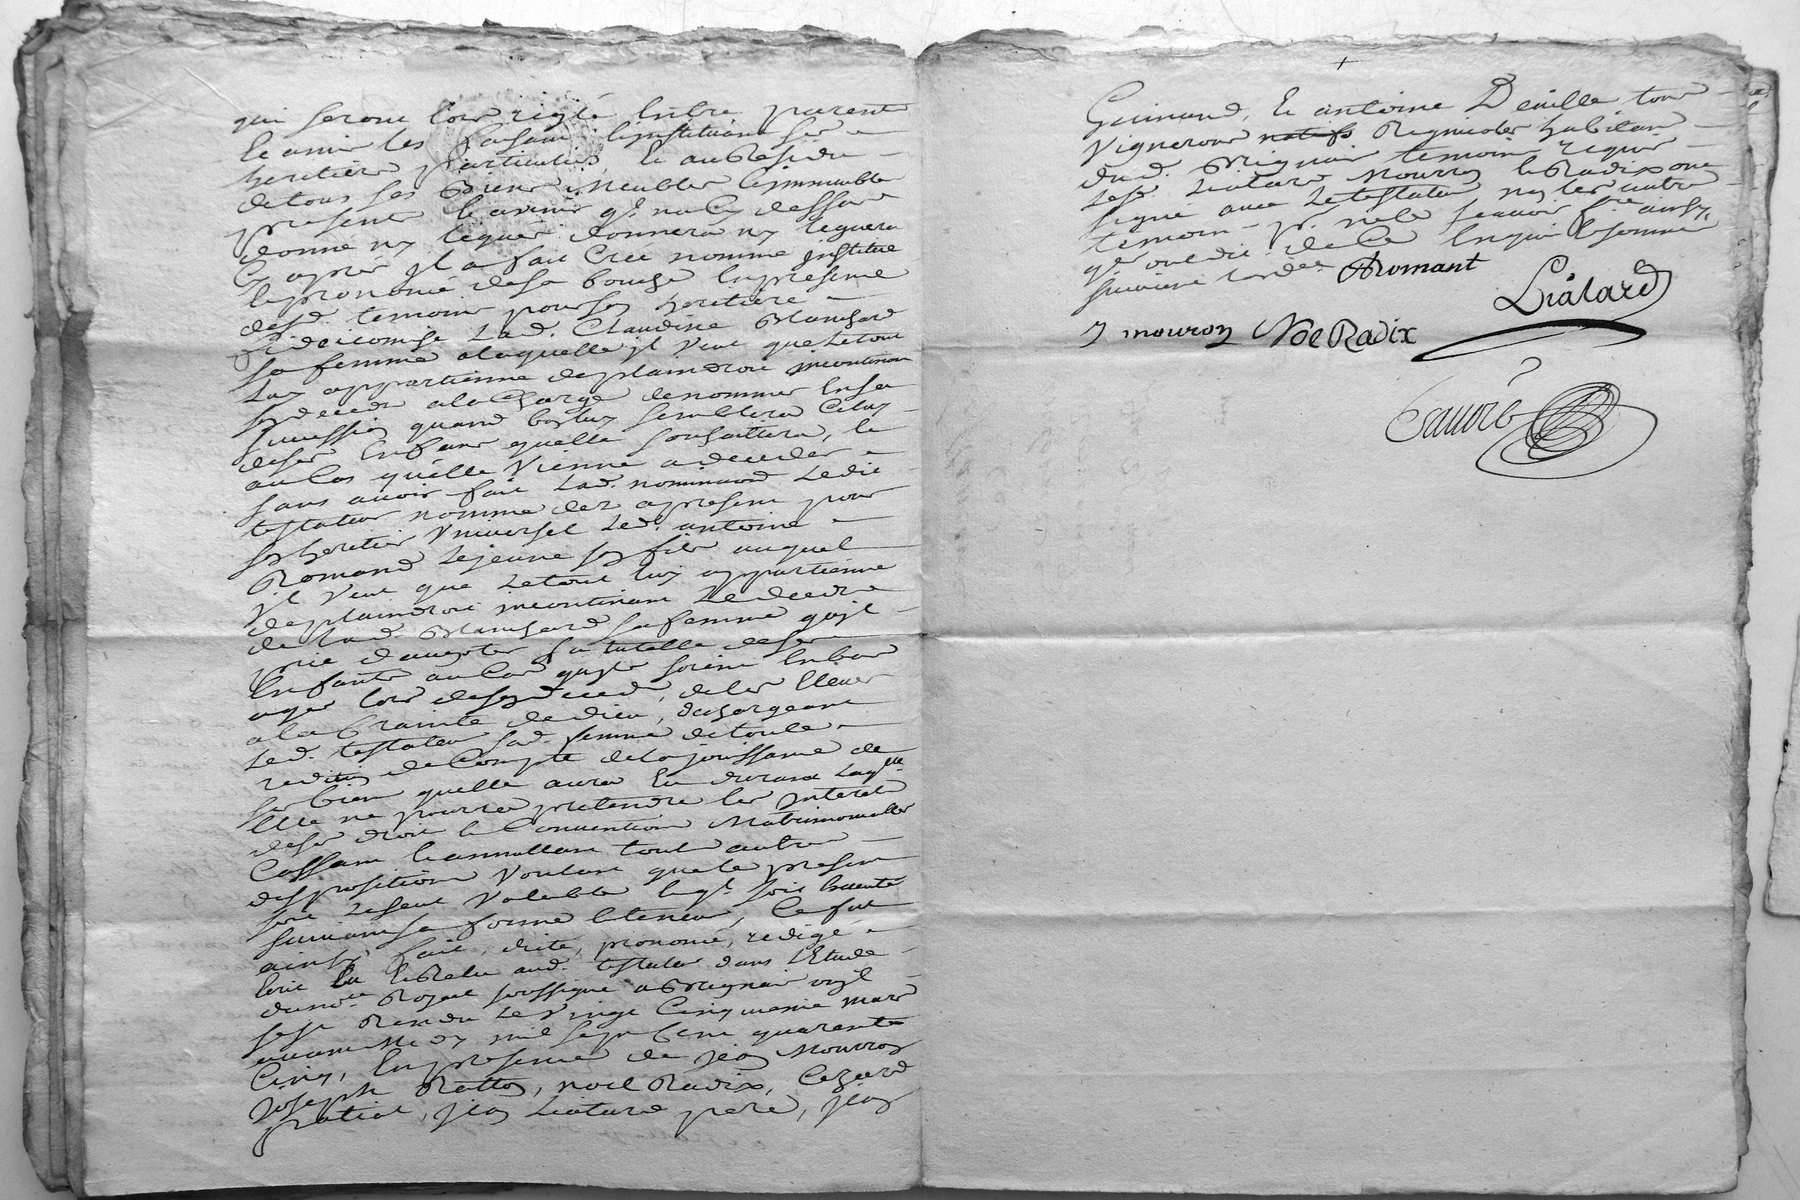 qui seront lors reglé Entre parent
et amis les faisant et instituant ses
heritiers particuliers, Et au Residu
de tous ses Biens Meubles et immeubles
present et avenir q.l na cy dessus
donné ny legué donnera ny leguera
Cy apres jl a fait Créé nommé institue
et prononcé de sa bouche En presence
desd. temoins pour son heritiere
fideicomise Lad. Claudine Blanchard
sa femme a laquelle jl veut que Le tout
Luy appartienne de plain droit incontinant
son deceds a la charge de nommer En sa
succession quand bon luy semblera Celuy
de ses Enfans quelle souhaittera, Et
au Cas quelle vienne a deceder
sans avoir fait Lad. nomination Ledit
testateur nomme dez apresent pour
son heritier Universel Led. antoine
Romand Lejeune son fils auquel
jl veut que Le tout luy appartienne
de plain droit incontinant Le deceds
de lad. Blanchard sa femme qujl
prie daccepter La tutelle de ses
Enfants au Cas qujls soient En bas
ages lors de son deceds, de les Elever
a la Crainte de dieu, dechargeant
Led. testateur sad. femme de toute
reddition de Compte de la jouissance de
ses biens quelle aura Eu durant laq.lle
Elle ne pourra pretendre les interets
de ses droits et Convention Matrimonialles
Cassant et annullant toute autre
disposition voulant que le present
soit Le seul valable Et q.l soit Executé
suivant sa forme et teneur, Ce fut
ainsy fait, dité, prononcé, redigé
Ecrit Lu et Relu aud. testateur dans L'Etude
du no.re Royal soussigné a Brignais ou jl
sest Rendu Le vingt Cinquieme mars
avant Midy mil sept Cent quarante
Cinq, En presence de jean Mouron
Joseph Ratton, noel Radix, Cezard
pratiat, jean Liatard pere, jean
Guinand, Et antoine Deville tous
Vignerons Regnicoles habitans
dud. Brignais temoins requis
Lesd. Liatard Mouron et Radix ont
signé avec Le testateur ny les autres
temoins p.r ne le scavoir f.re ainsy
q.l ont dit de Ce Enquis et sommés
suivant Lordce. ARomant
Liatard
J mouron Noe Radix